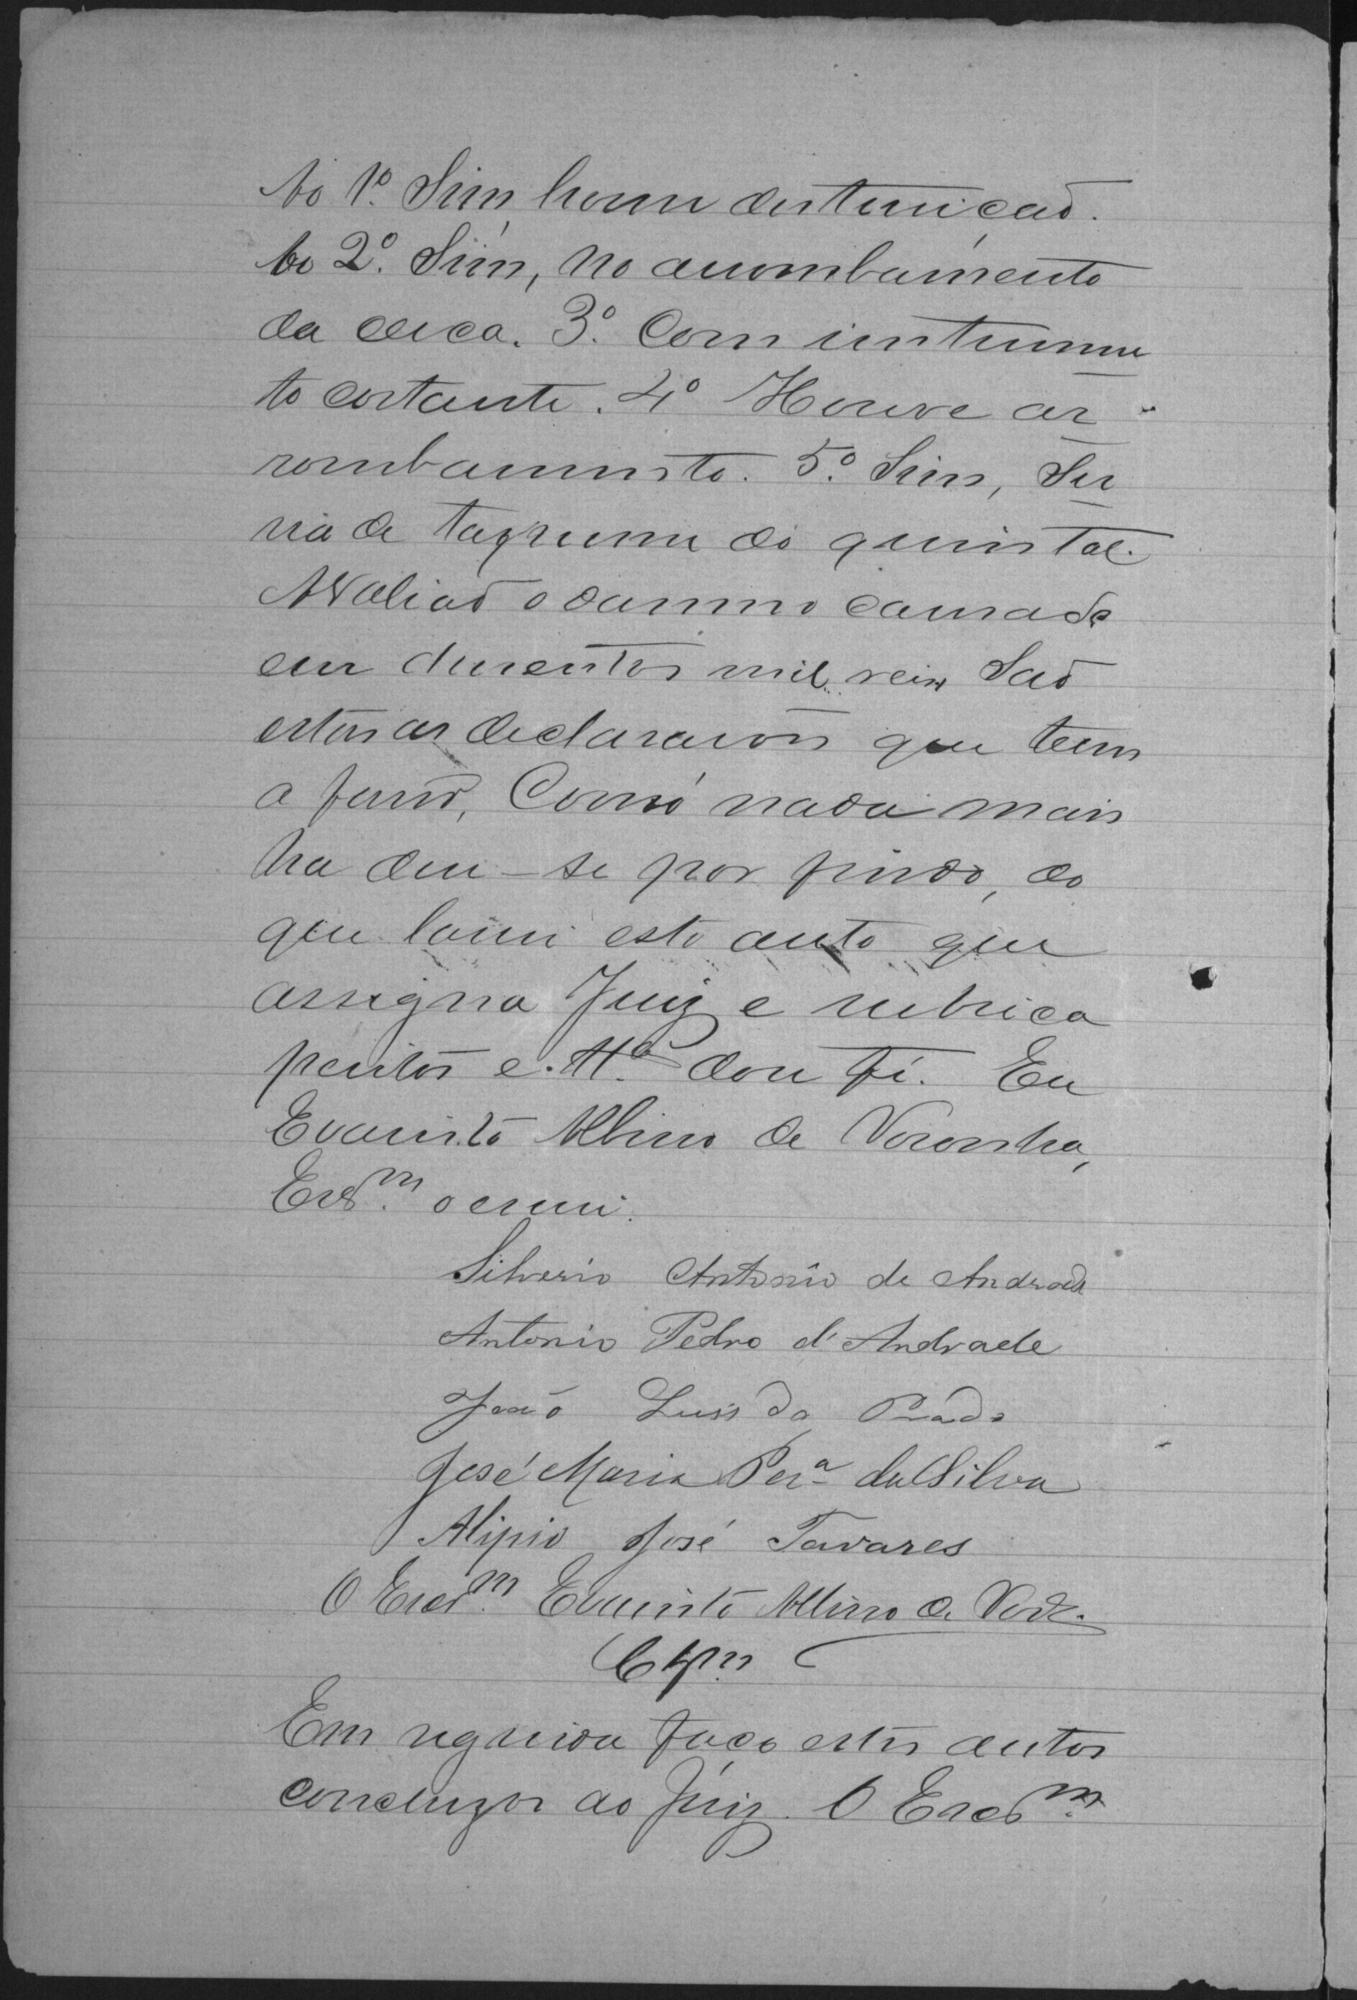 Ao 1º. Sim, houve destruição.
Ao 2º. Sim, no arrombamento
da cerca. 3º. Com instrumen
to cortante. 4º Houve ar
rombamento. 5º. Sim, Ser
via de tapume do quintal.
Avalião o damno causado
em duzentos mil reis. São
estas as declarações que tem
a fazer, Como nada mais
ha deu-se por findo, do
que lavrei este auto que
assigna Juiz e rubrica
peritos e tt.ª dou fé. Eu
Evaristo Albino de Noronha,
Escr.m o escrevi.
Silverio Antonio de Andrade
Antonio Pedro d'Andrade
João Luis do Prado
José Maria Per.ª da Silva
Alipio José Tavares
O Escr.m Evaristo Albino de
Clz.m
Em seguida faço estes autos
concluzos ao Juiz. O Escr.m